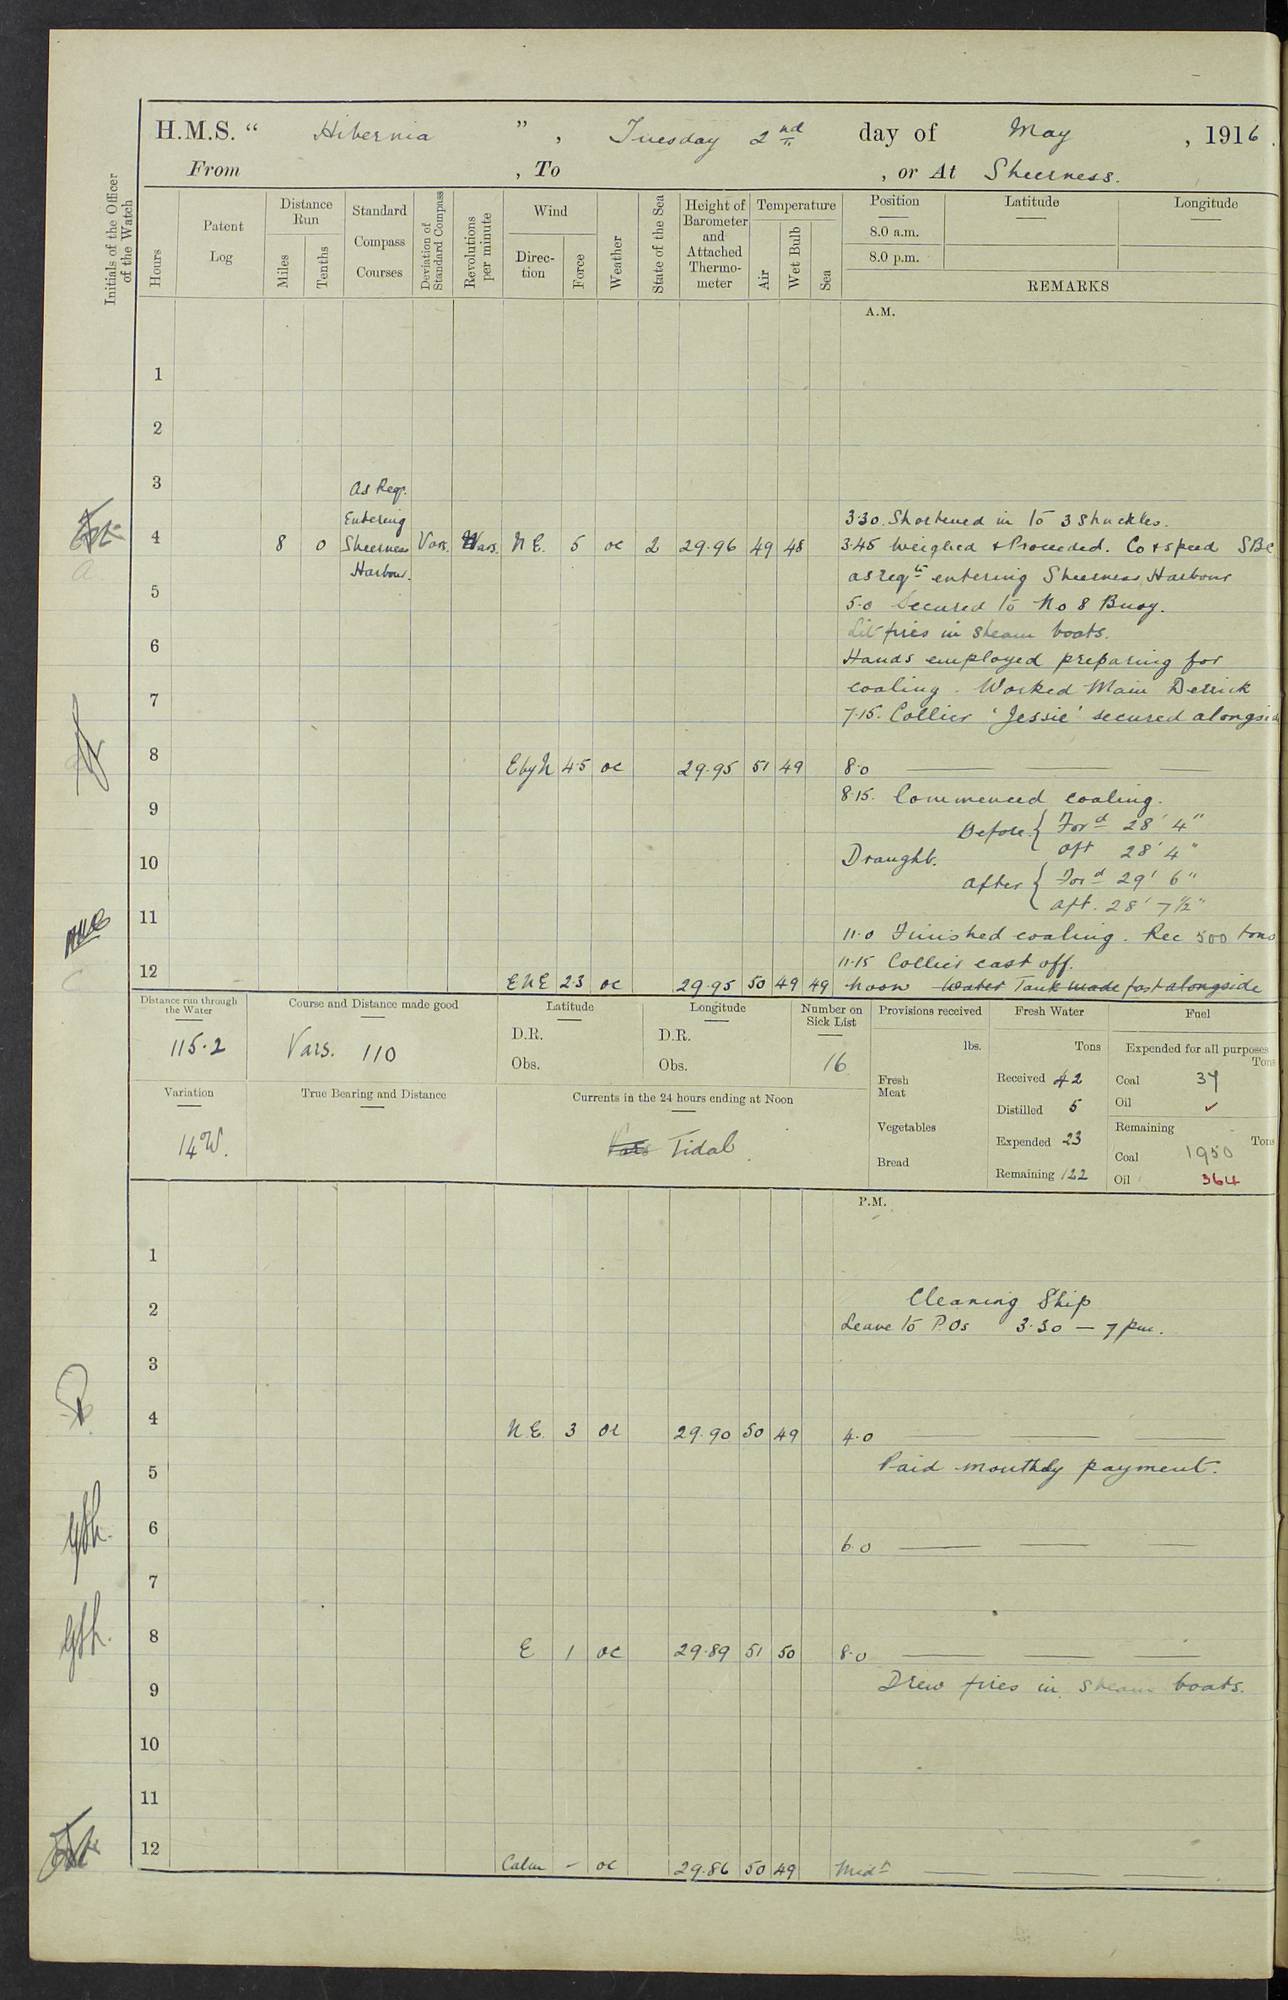 H.M.S. “ Hibernia ” , Tuesday 2nd day of May , 1916.
From , To , or At Sheerness.
Initials of the Officer of the Watch
Hours
Patent Log
Distance Run
Miles
Tenths
Standard Compass Courses
Deviation of Standard Compass
Revolutions per minute
Wind
Direction
Force
Weather
State of the Sea
Height of Barometer and Attached Thermometer
Temperature
Air
Wet Bulb
Sea
Position Latitude Longitude
8.0 a.m.
8.0 p.m.
REMARKS
A.M.
1
2
3
As Reqr.
Entering
4 8 0 Sheerness Vars. Vars. N E. 5 oc 2 29.96 49 48
Harbour.
3.30. Shortened in to 3 shackles.
3.45 Weighed & Proceeded. Co & speed
as reqte entering Sheerness Harbour
5
5.0 Secured to No 8 Buoy.
Lit fires in steam boats.
6
Hands employed preparing for
coaling. Worked Main Derrick
7
7.15. Collier 'Jessie' secured alongside
8 E by N 4.5 oc 29.95 51 49 8.0
8.15. Commenced coaling.
9
Before { Ford 28' 4"
aft 28' 4"
10 Draught.
After { Ford 29' 6"
aft. 28' 7½"
11
11.0 Finished coaling. Rec 500 tons
11.15 Collier cast off.
12 E N E 2.3 oc 29.95 50 49 49 Noon Water Tank made fast alongside
Distance run through the Water
115.2
Course and Distance made good
Vars. 110
Latitude
D.R.
Obs.
Longitude
D.R.
Obs.
Number on Sick List
16
Variation
14°W.
True Bearing and Distance
Currents in the 24 hours ending at Noon
Vars Tidal
Provisions received
lbs.
Fresh Meat
Vegetables
Bread
Fresh Water
Tons
Received 42
Distilled 5
Expended 23
Remaining 122
Fuel
Expended for all purposes
Tons
Coal 37
Oil ✓
Remaining
Tons
Coal 1950
Oil 364
P.M.
1
2
Cleaning Ship
Leave to POs 3.30 — 7 pm.
3
4 N.E. 3 oc 29.90 50 49 4.0
5 Paid monthly payment.
6 6.0
7
8 E 1 oc 29.89 51 50 8.0
9 Drew fires in steam boats.
10
11
12 Calm - oc 29.86 50 49 Midt